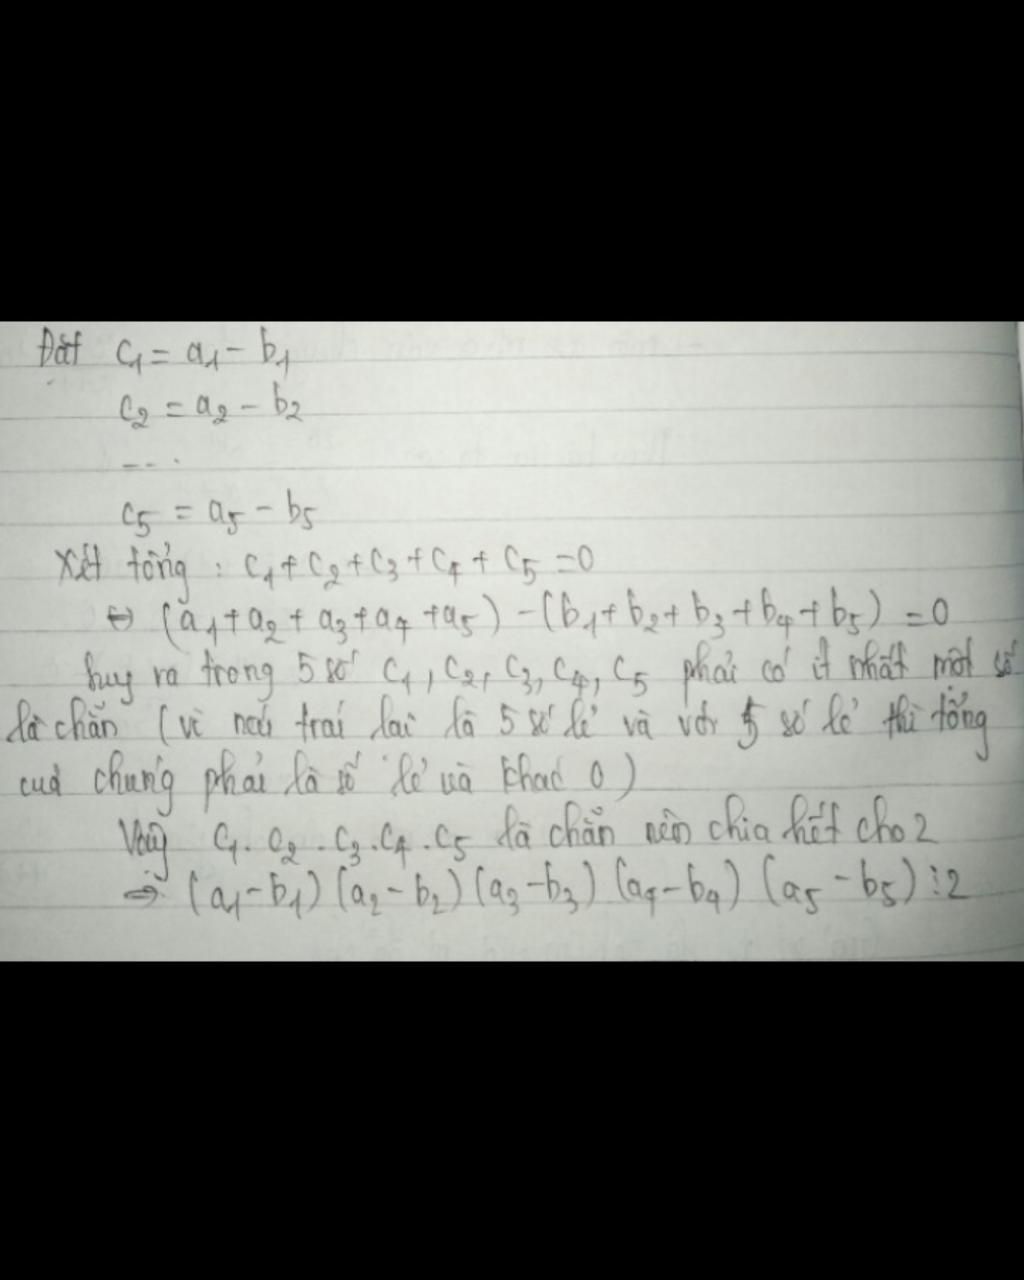 Đặt c₁ = a₁ - b₁
c₂ = a₂ - b₂
...
c₅ = a₅ - b₅
Xét tổng : c₁ + c₂ + c₃ + c₄ + c₅ = 0
⇔ (a₁ + a₂ + a₃ + a₄ + a₅) - (b₁ + b₂ + b₃ + b₄ + b₅) = 0
Suy ra trong 5 số c₁, c₂, c₃, c₄, c₅ phải có ít nhất một số
là chẵn (vì nếu trái lại là 5 số lẻ và với 5 số lẻ thì tổng
của chúng phải là số lẻ và khác 0)
Vậy c₁ . c₂ . c₃ . c₄ . c₅ là chẵn nên chia hết cho 2
⇒ (a₁ - b₁) (a₂ - b₂) (a₃ - b₃) (a₄ - b₄) (a₅ - b₅) ⋮ 2